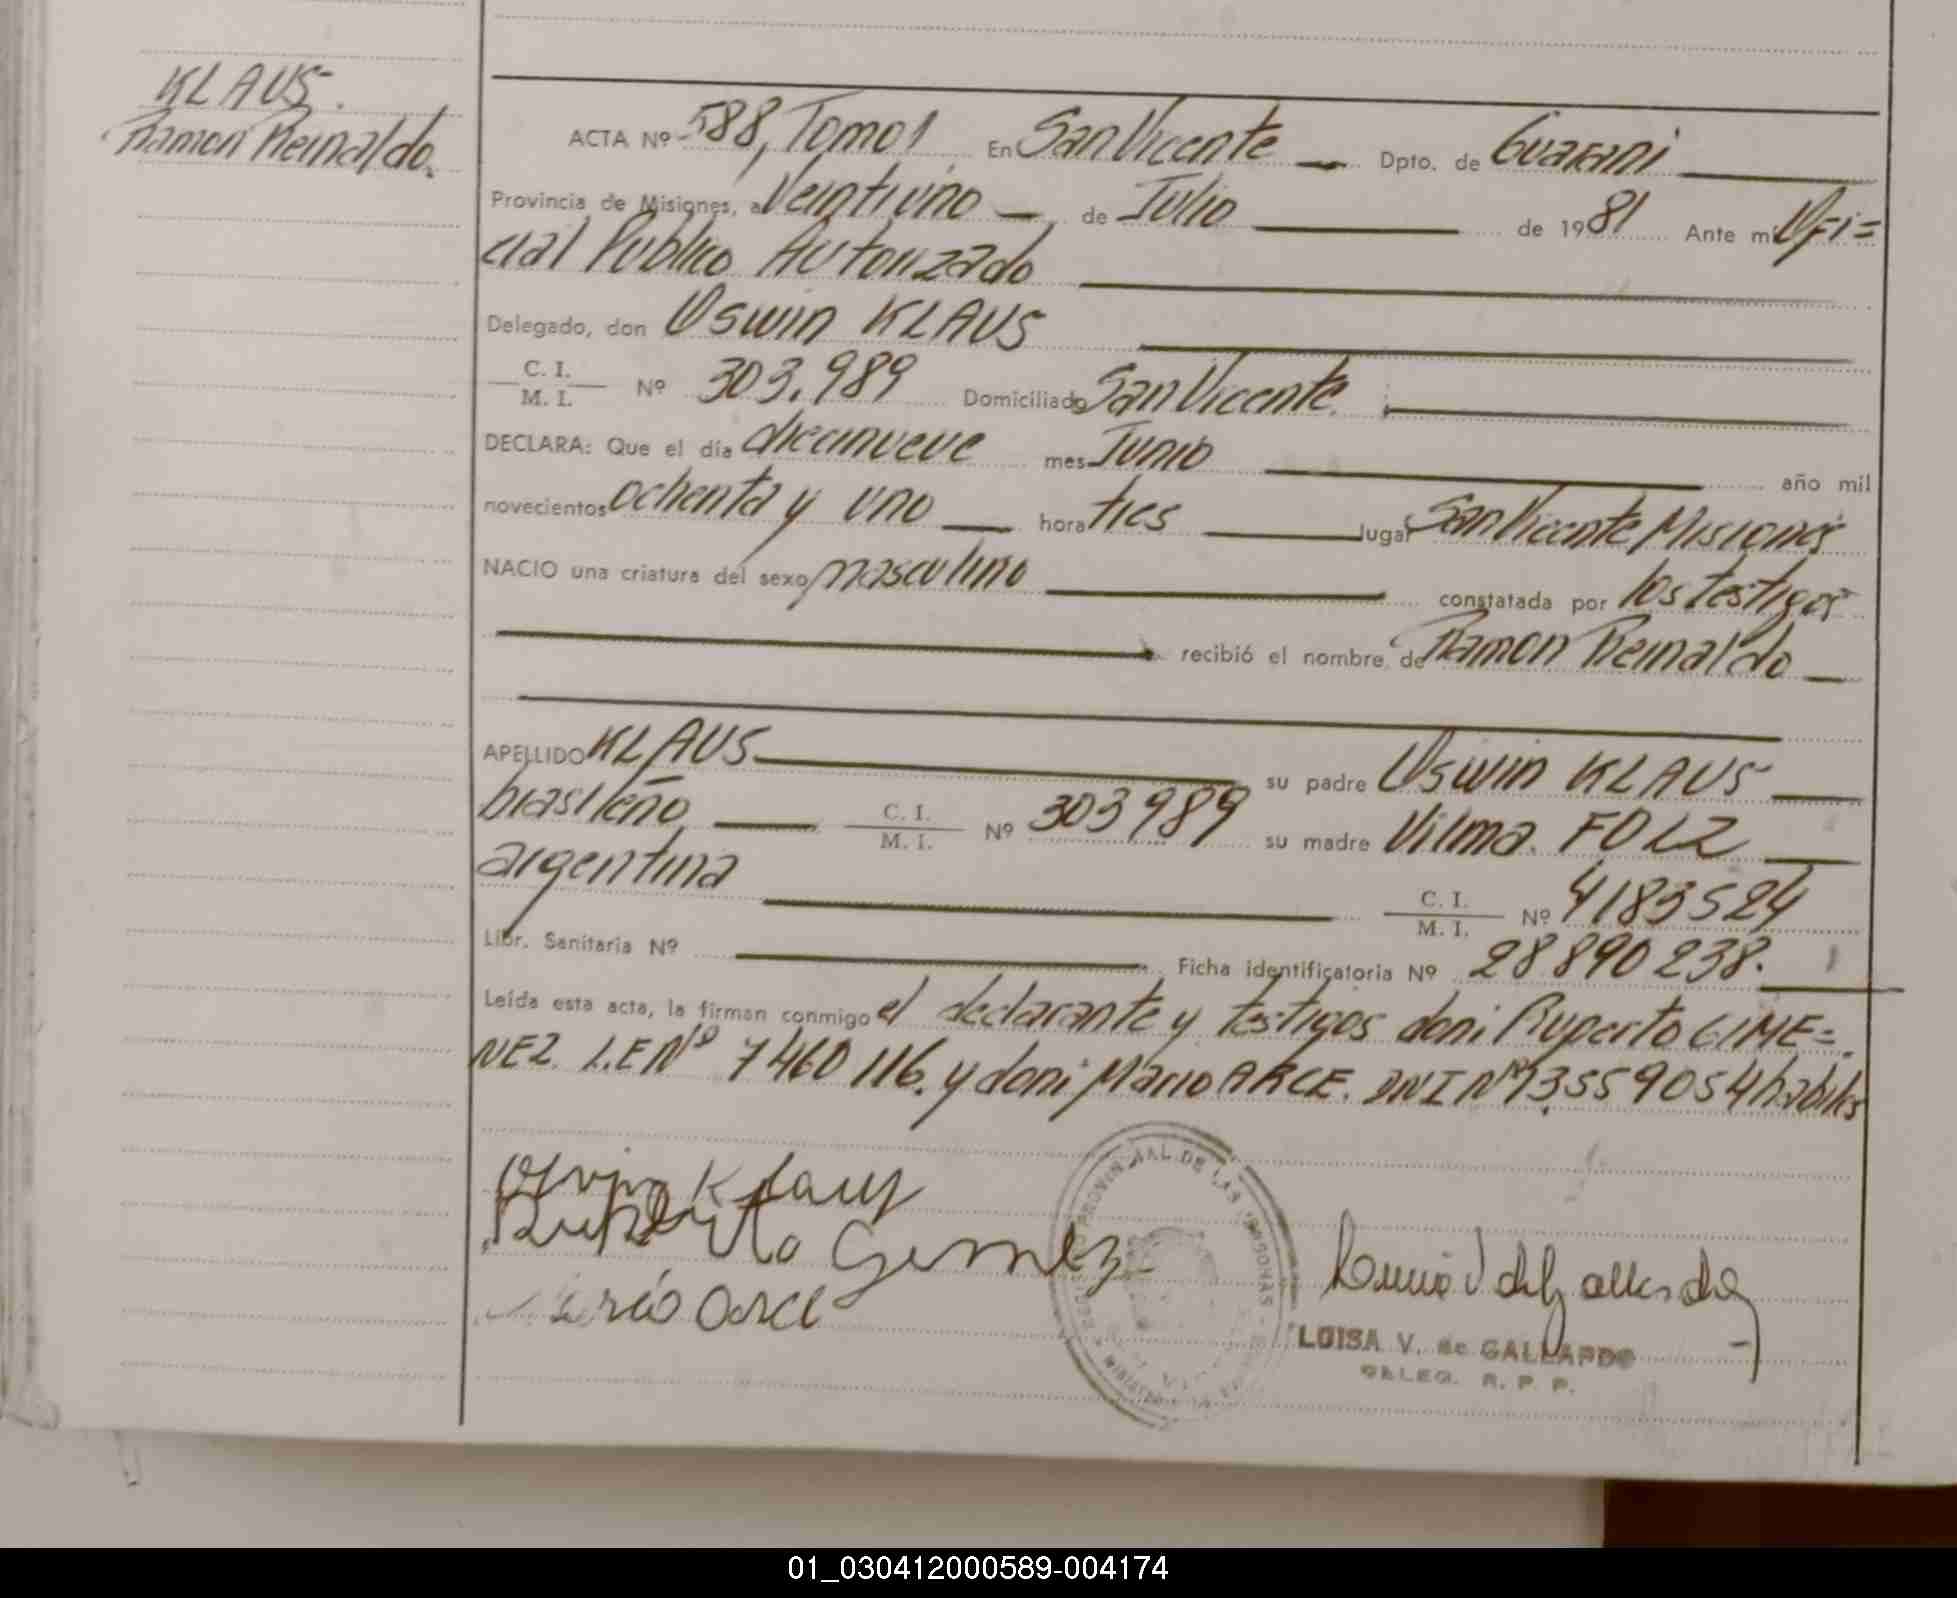 KLAUS.
Ramon Reinaldo.
ACTA Nº 588, Tomo 1 En San Vicente Dpto. de Guarani
Provincia de Misiones, a Veintiuno de Julio de 1981 Ante mi Ofi=
cial Publico Autorizado
Delegado, don Oswin KLAUS
C. I.
M. I. Nº 303.989 Domiciliado San Vicente
DECLARA: Que el día diecinueve mes Junio año mil
novecientos ochenta y uno hora tres lugar San Vicente Misiones
NACIO una criatura del sexo masculino constatada por los testigos
recibió el nombre de Ramon Reinaldo
APELLIDO KLAUS su padre Oswin KLAUS
brasileño C. I.
M. I. Nº 303989 su madre Vilma FOLZ
argentina C. I.
M. I. Nº 4183524
Libr. Sanitaria Nº Ficha identificatoria Nº 28890238.
Leída esta acta, la firman conmigo el declarante y testigos don: Ruperto GIME=
NEZ. L.E Nº 7460116. y don: Mario ARCE. DNI Nº 13.559054 habiles
Oswin Klaus
Ruperto Gimenez
Mario Arce
PROVINCIAL DE LAS PERSONAS
LUISA V. de GALLARDO
DELEG. R. P. P.
01_030412000589-004174